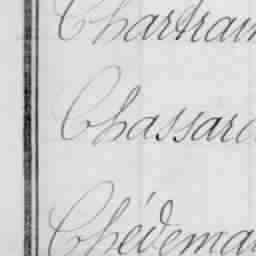 Chartrain
Chassard
Chédemai